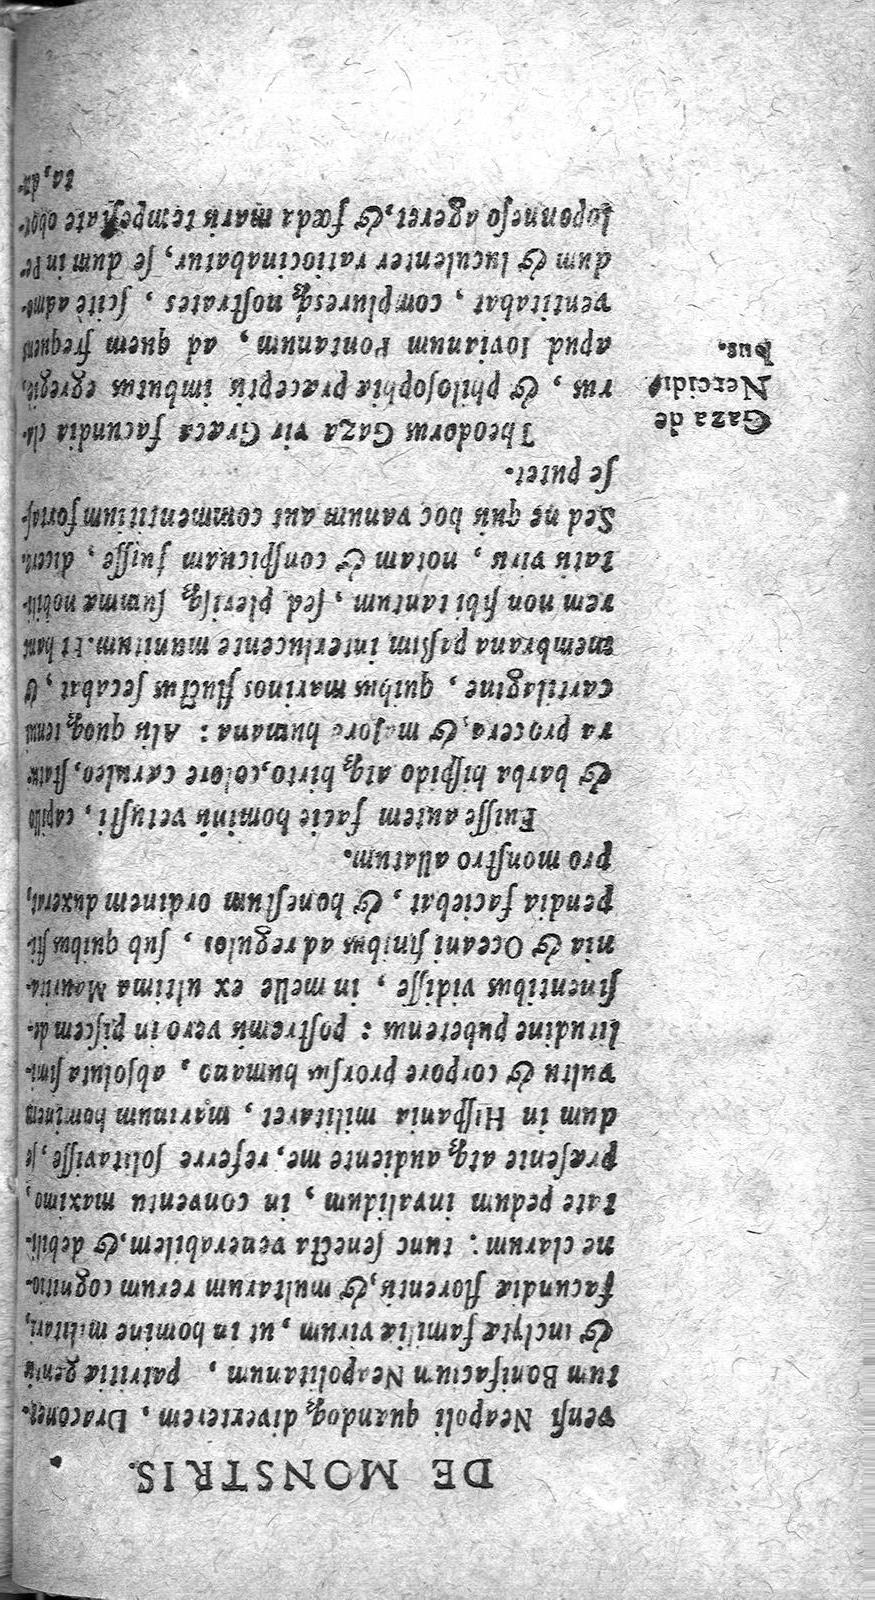 DE MONSTRIS.
vensi Neapoli quandoq; diverterem, Draconet-
tum Bonifacium Neapolitanum, patritiæ gentis
& inclytæ familiæ virum, ut in homine militari,
facundiæ florentis, & multarum rerum cognitio-
ne clarum: tunc senecta venerabilem, & debili-
tate pedum invalidum, in conventu maximo,
præsente atq; audiente me, referre solitavisse, se
dum in Hispania militaret, marinum hominem
vultu & corpore prorsus humano, absoluta simi-
litudine pubetenus: postremis vero in piscem de-
sinentibus vidisse, in melle ex ultima Maurita-
nia & Oceani finibus ad regulos, sub quibus sti-
pendia faciebat, & honestum ordinem duxerat,
pro monstro allatum.
Fuisse autem facie hominis vetusti, capillo
& barba hispido atq; hirto, colore cæruleo, statu-
ra procera, & majore humana: Alis quoq; tenui
cartilagine, quibus marinos fluctus secabat, &
membrana passim interlucente munitum. Et hanc
rem non sibi tantum, sed plerisq; summæ nobili-
tatis viris, notam & conspicuam fuisse, diceret.
Sed ne quis hoc vanum aut commentitium fortas-
se putet.
Theodorus Gaza vir Græca facundia cla-
rus, & philosophiæ præceptis imbutus egregie,
apud Iovianum Pontanum, ad quem frequens
ventitabat, compluresq; nostrates, scitè admo-
dum & luculenter ratiocinabatur, se dum in Pe-
loponneso ageret, & fœda maris tempestate obor-
ta, du-
Gaza de
Nereidi-
bus.